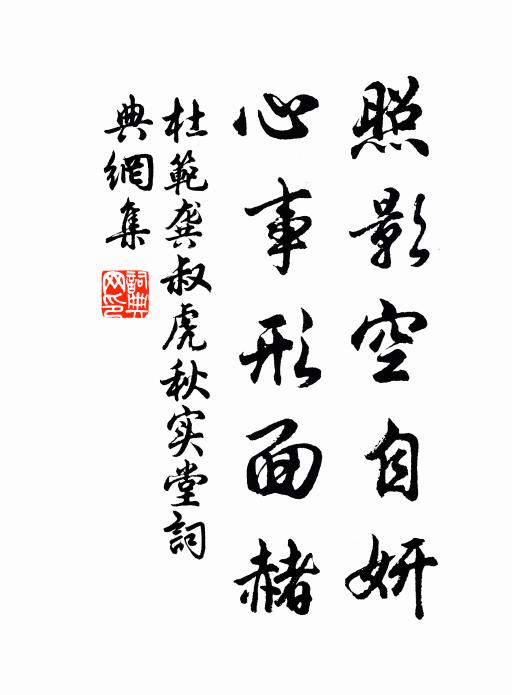 照影空自妍
心事形面赭
杜範龔叔虎秋实堂詞
典網集
詞典網印